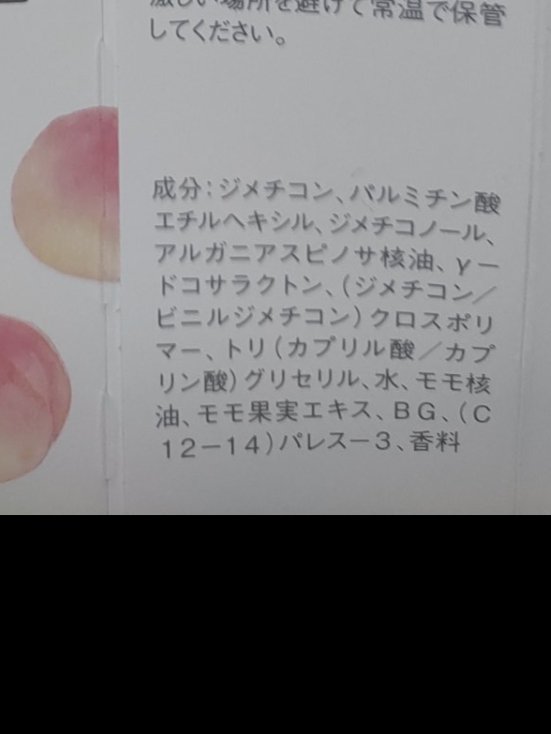 激しい場所を避けて常温で保管
してください。
成分：ジメチコン、パルミチン酸
エチルヘキシル、ジメチコノール、
アルガニアスピノサ核油、γ－
ドコサラクトン、（ジメチコン／
ビニルジメチコン）クロスポリ
マー、トリ（カプリル酸／カプ
リン酸）グリセリル、水、モモ核
油、モモ果実エキス、ＢＧ、（Ｃ
１２－１４）パレス－３、香料